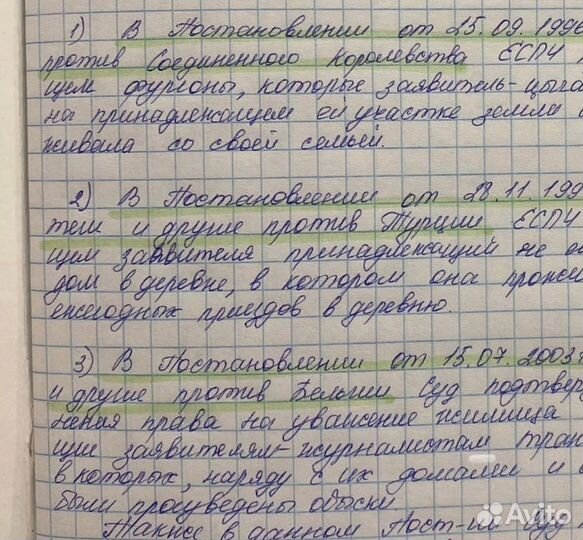 1) В Постановлении от 25.09.1996
против Соединенного Королевства ЕСПЧ
щем фургоны, которые заявитель-цыга
на принадлежащем ей участке земли
живала со своей семьей.
2) В Постановлении от 28.11.199
теш и другие против Турции ЕСПЧ
щем заявителя принадлежащий не
дом в деревне, в котором она прожи
ежегодных приездов в деревню.
3) В Постановлении от 15.07.2003г
и другие против Бельгии Суд подтвер
нения права на уважение жилища
щие заявителям-журналистам тран
в которых, наряду с их домами и
были произведены обыски.
Также в данном Пост-ии Суд
Avito